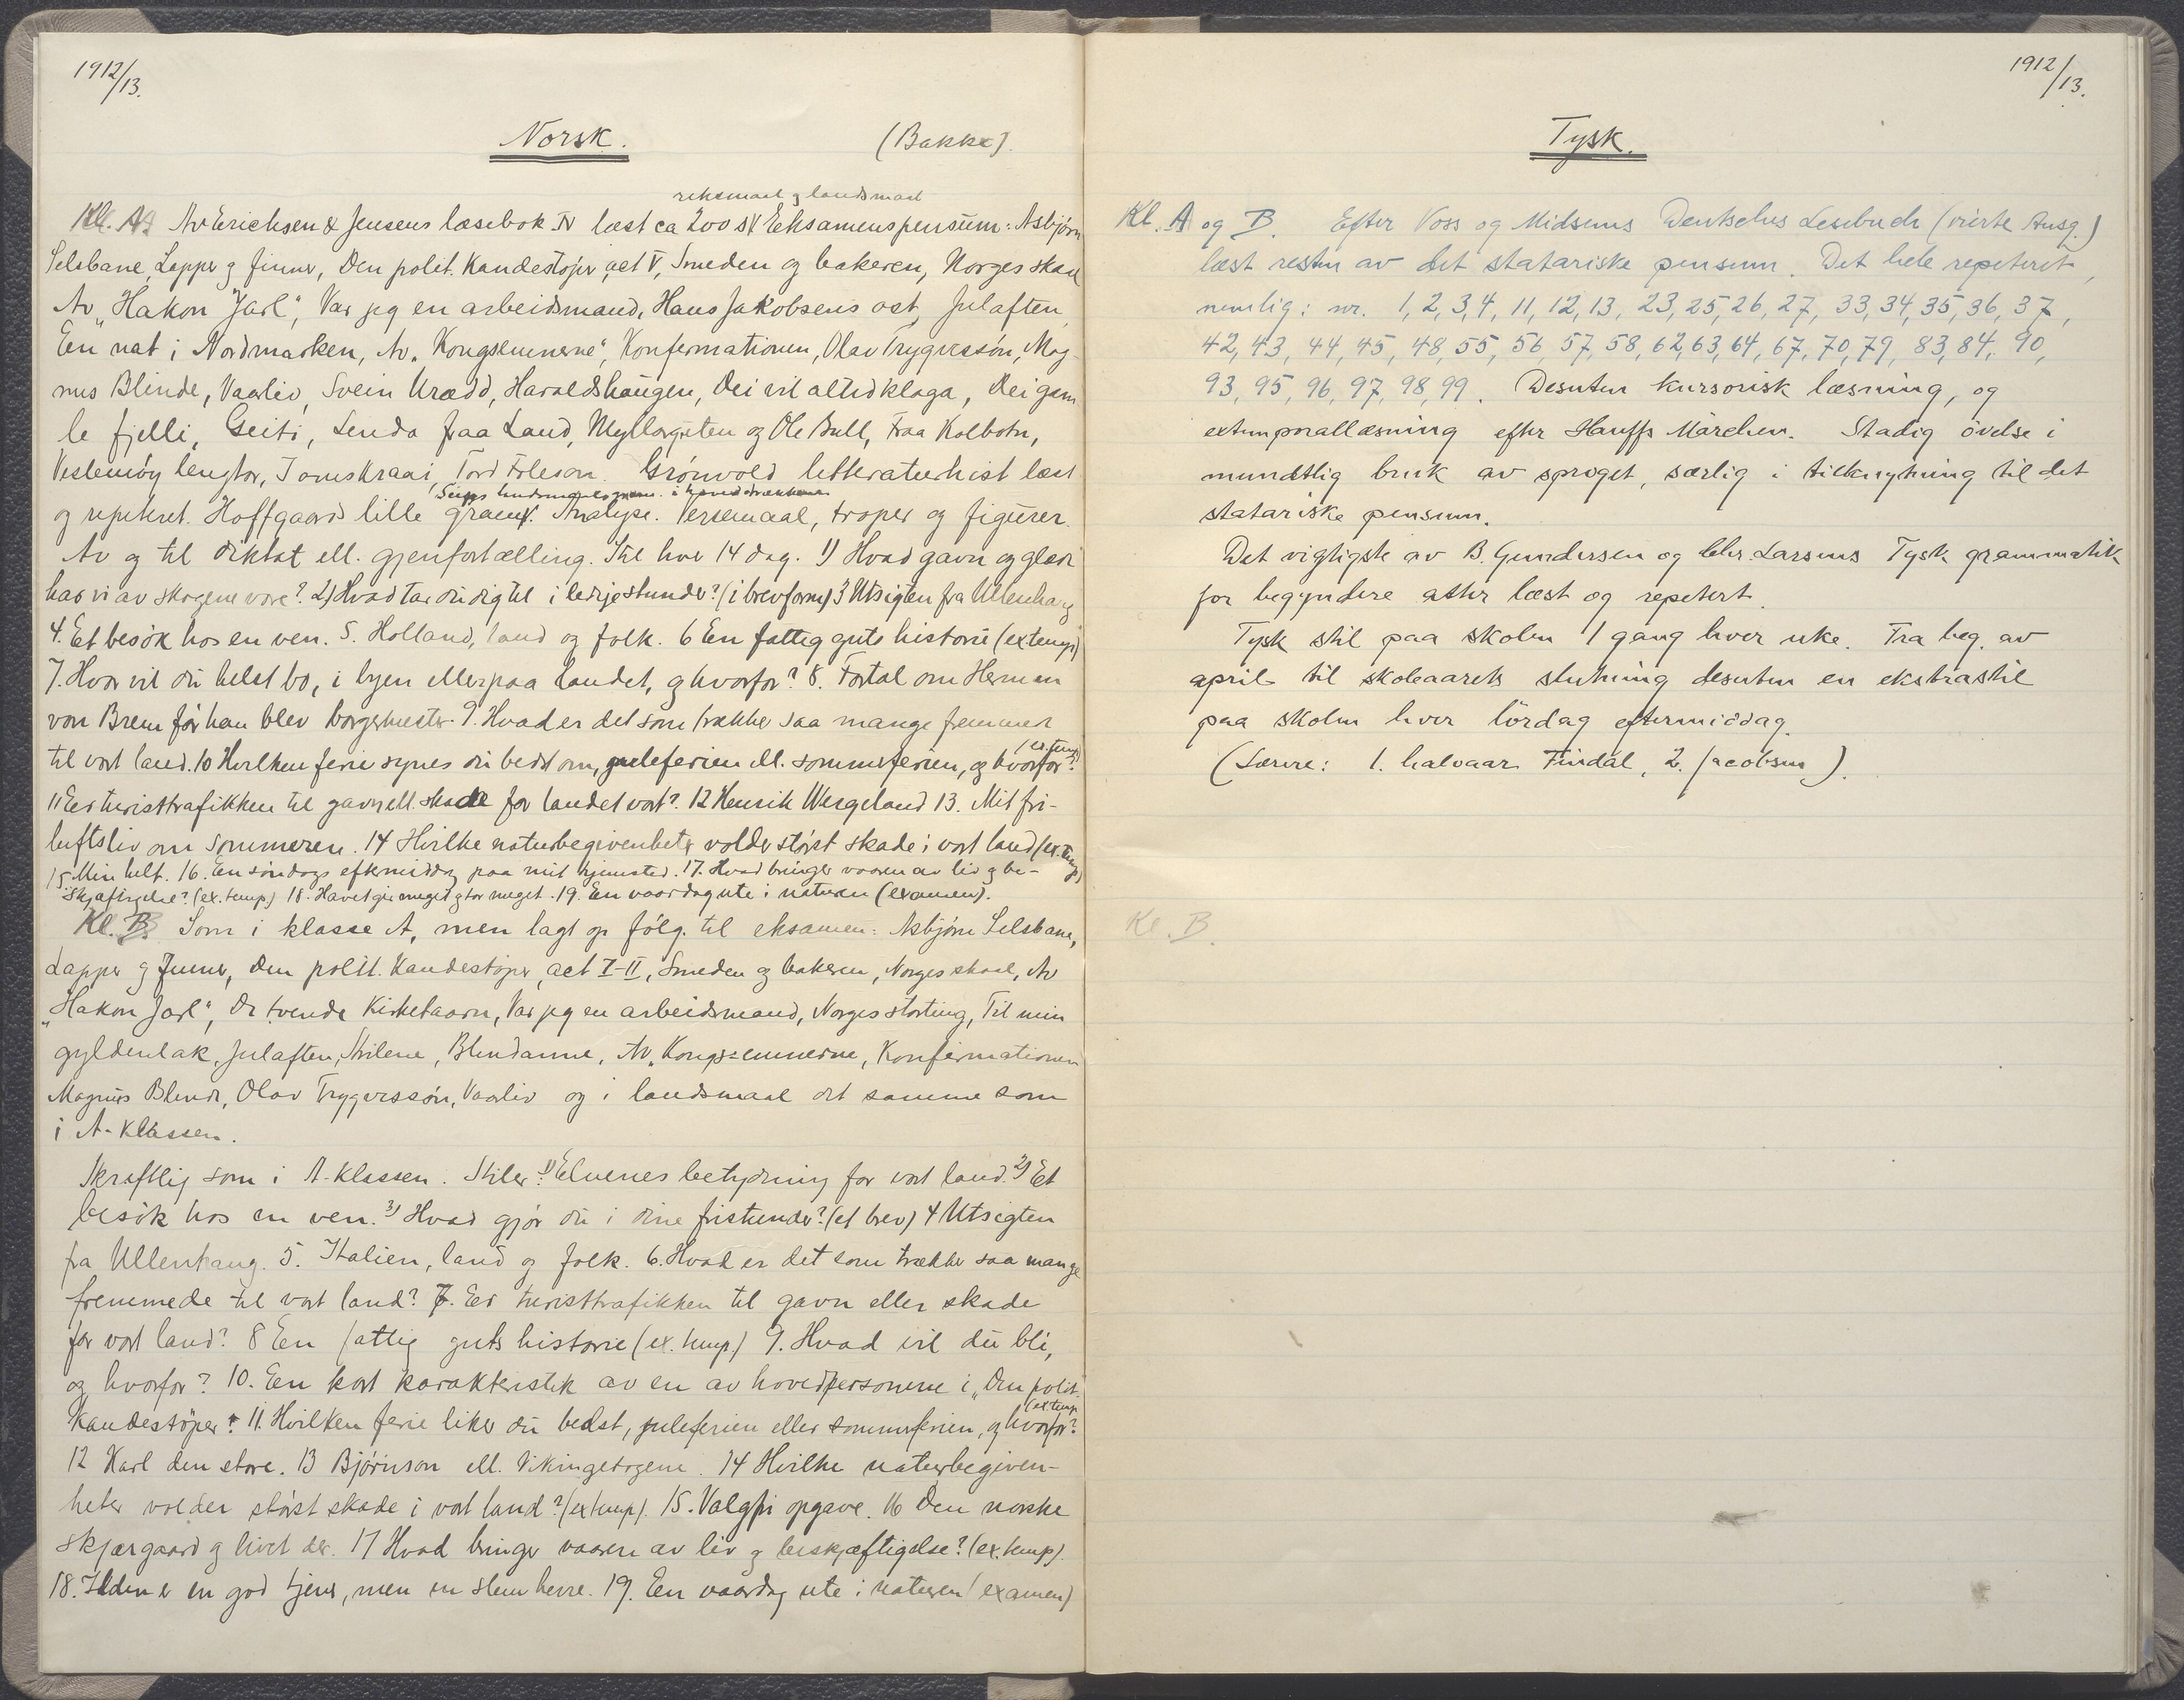 1912/13.
Norsk. (Bakke).
riksmaal og landsmaal
Kl. A. Av Erichsen & Jensens læsebok IV læst ca 200 s. Eksamenspensum: Asbjørn
Selsbane, Lapper og finner, Den polit. Kandestøper, act V, Smeden og bakeren, Norges skaal
Av "Hakon Jarl", Var jeg en arbeidsmand, Hans Jakobsens ost, Julaften,
En nat i Nordmarken, Av "Kongsemnerne", Konfirmationen, Olav Trygvessøn, Mag-
nus Blinde, Vaarliv, Svein Urædd, Haraldshaugen, Dei vil altid klaga, Dei gam
le fjelli, Geiti, Lenda fraa Land, Myllarguten og Ole Bull, Fraa Kolbotn,
Veslemøy lengtar, I omskraai, Tord Foleson. Grønvold litteraturhist læst
Seips landsmaalsgram. i hoveddrækkene
og repeteret. Hoffgaards lille gram. Analyse. Versemaal, troper og figurer.
Av og til diktat ell. gjenfortælling. Stil hver 14 dag. 1) Hvad gavn og glæde
har vi av skogene vore? 2) Hvad tar du dig til i ledige stunder? (i brevform) 3 Utsigten fra Ullenhaug
4. Et besøk hos en ven. 5. Holland, land og folk. 6 En fattig guts historie (ex temp)
7. Hvor vil du helst bo, i byen eller paa landet, og hvorfor? 8. Fortal om Herman
von Brem før han blev borgermester. 9. Hvad er det som trækker saa mange fremmede
til vort land. 10 Hvilken ferie synes du bedst om, juleferien ell. sommerferien, og hvorfor? (ex. temp)
11 Er turisttrafikken til gavn ell. skade for landet vort? 12 Henrik Wergeland 13. Mit fri-
luftsliv om sommeren. 14 Hvilke naturbegivenheter volder størst skade i vort land (ex. temp)
15 Min helt. 16. En søndags eftermiddag paa mit hjemsted. 17. Hvad bringer vaaren av liv og be-
skjæftigelse? (ex. temp) 18. Havet gir meget og tar meget. 19. En vaardag ute i naturen (examen).
Kl. B. Som i klasse A, men lagt op følg. til eksamen: Asbjørn Selsbane,
Lapper og Finner, Den polit. Kandestøper, act I-II, Smeden og bakeren, Norges skaal, Av
"Hakon Jarl", De tvende Kirketaarn, Var jeg en arbeidsmand, Norges storting, Til min
gyldenlak, Julaften, Svilene, Blindanne, Av "Kongs-emnerne, Konfirmationen
Magnus Blinde, Olav Trygvessøn, Vaarliv og i landsmaal det samme som
i A-klassen.
Skriftlig som i A-klassen. Stiler: 1) Elvenes betydning for vort land. 2) Et
besøk hos en ven. 3) Hvad gjør du i dine fristunder? (et brev) 4 Utsigten
fra Ullenhaug. 5. Italien, land og folk. 6. Hvad er det som trækker saa mange
fremmede til vort land? 7. Er turisttrafikken til gavn eller skade
for vort land? 8 En fattig guts historie (ex. temp) 9. Hvad vil du bli,
og hvorfor? 10. En kort karakteristik av en av hovedpersonene i "Den polit.
Kandestøper". 11. Hvilken ferie liker du bedst, juleferien eller sommerferien, og hvorfor? (ex. temp
12 Karl den store. 13 Bjørnson ell. Vikingetogene. 14 Hvilke naturbegiven-
heter volder størst skade i vort land? (ex temp). 15. Valgfri opgave. 16 Den norske
skjærgaard og livet der. 17 Hvad bringer vaaren av liv og beskjæftigelse? (ex. temp).
18. Ilden er en god tjener, men en slem herre. 19. En vaardag ute i naturen (examen)
1912/13.
Tysk.
Kl. A og B. Efter Voss og Midsems Deutsches Lesebuch (vierte Ausg.)
læst resten av det statariske pensum. Det hele repeteret,
nemlig: nr. 1, 2, 3, 4, 11, 12, 13, 23, 25, 26, 27, 33, 34, 35, 36, 37,
42, 43, 44, 45, 48, 55, 56, 57, 58, 62, 63, 64, 67, 70, 79, 83, 84, 90,
93, 95, 96, 97, 98, 99. Desuten kursorisk læsning, og
extemporallæsning efter Hauffs Märchen. Stadig øvelse i
mundtlig bruk av sproget, særlig i tilknytning til det
statariske pensum.
Det vigtigste av B. Gundersen og Chr. Larsens Tysk grammatik
for begyndere atter læst og repetert.
Tysk stil paa skolen 1 gang hver uke. Fra beg. av
april til skoleaarets slutning desuten en ekstrastil
paa skolen hver lördag eftermiddag.
(Lærere: 1. halvaar Findal, 2. Jacobsen).
Kl. B.